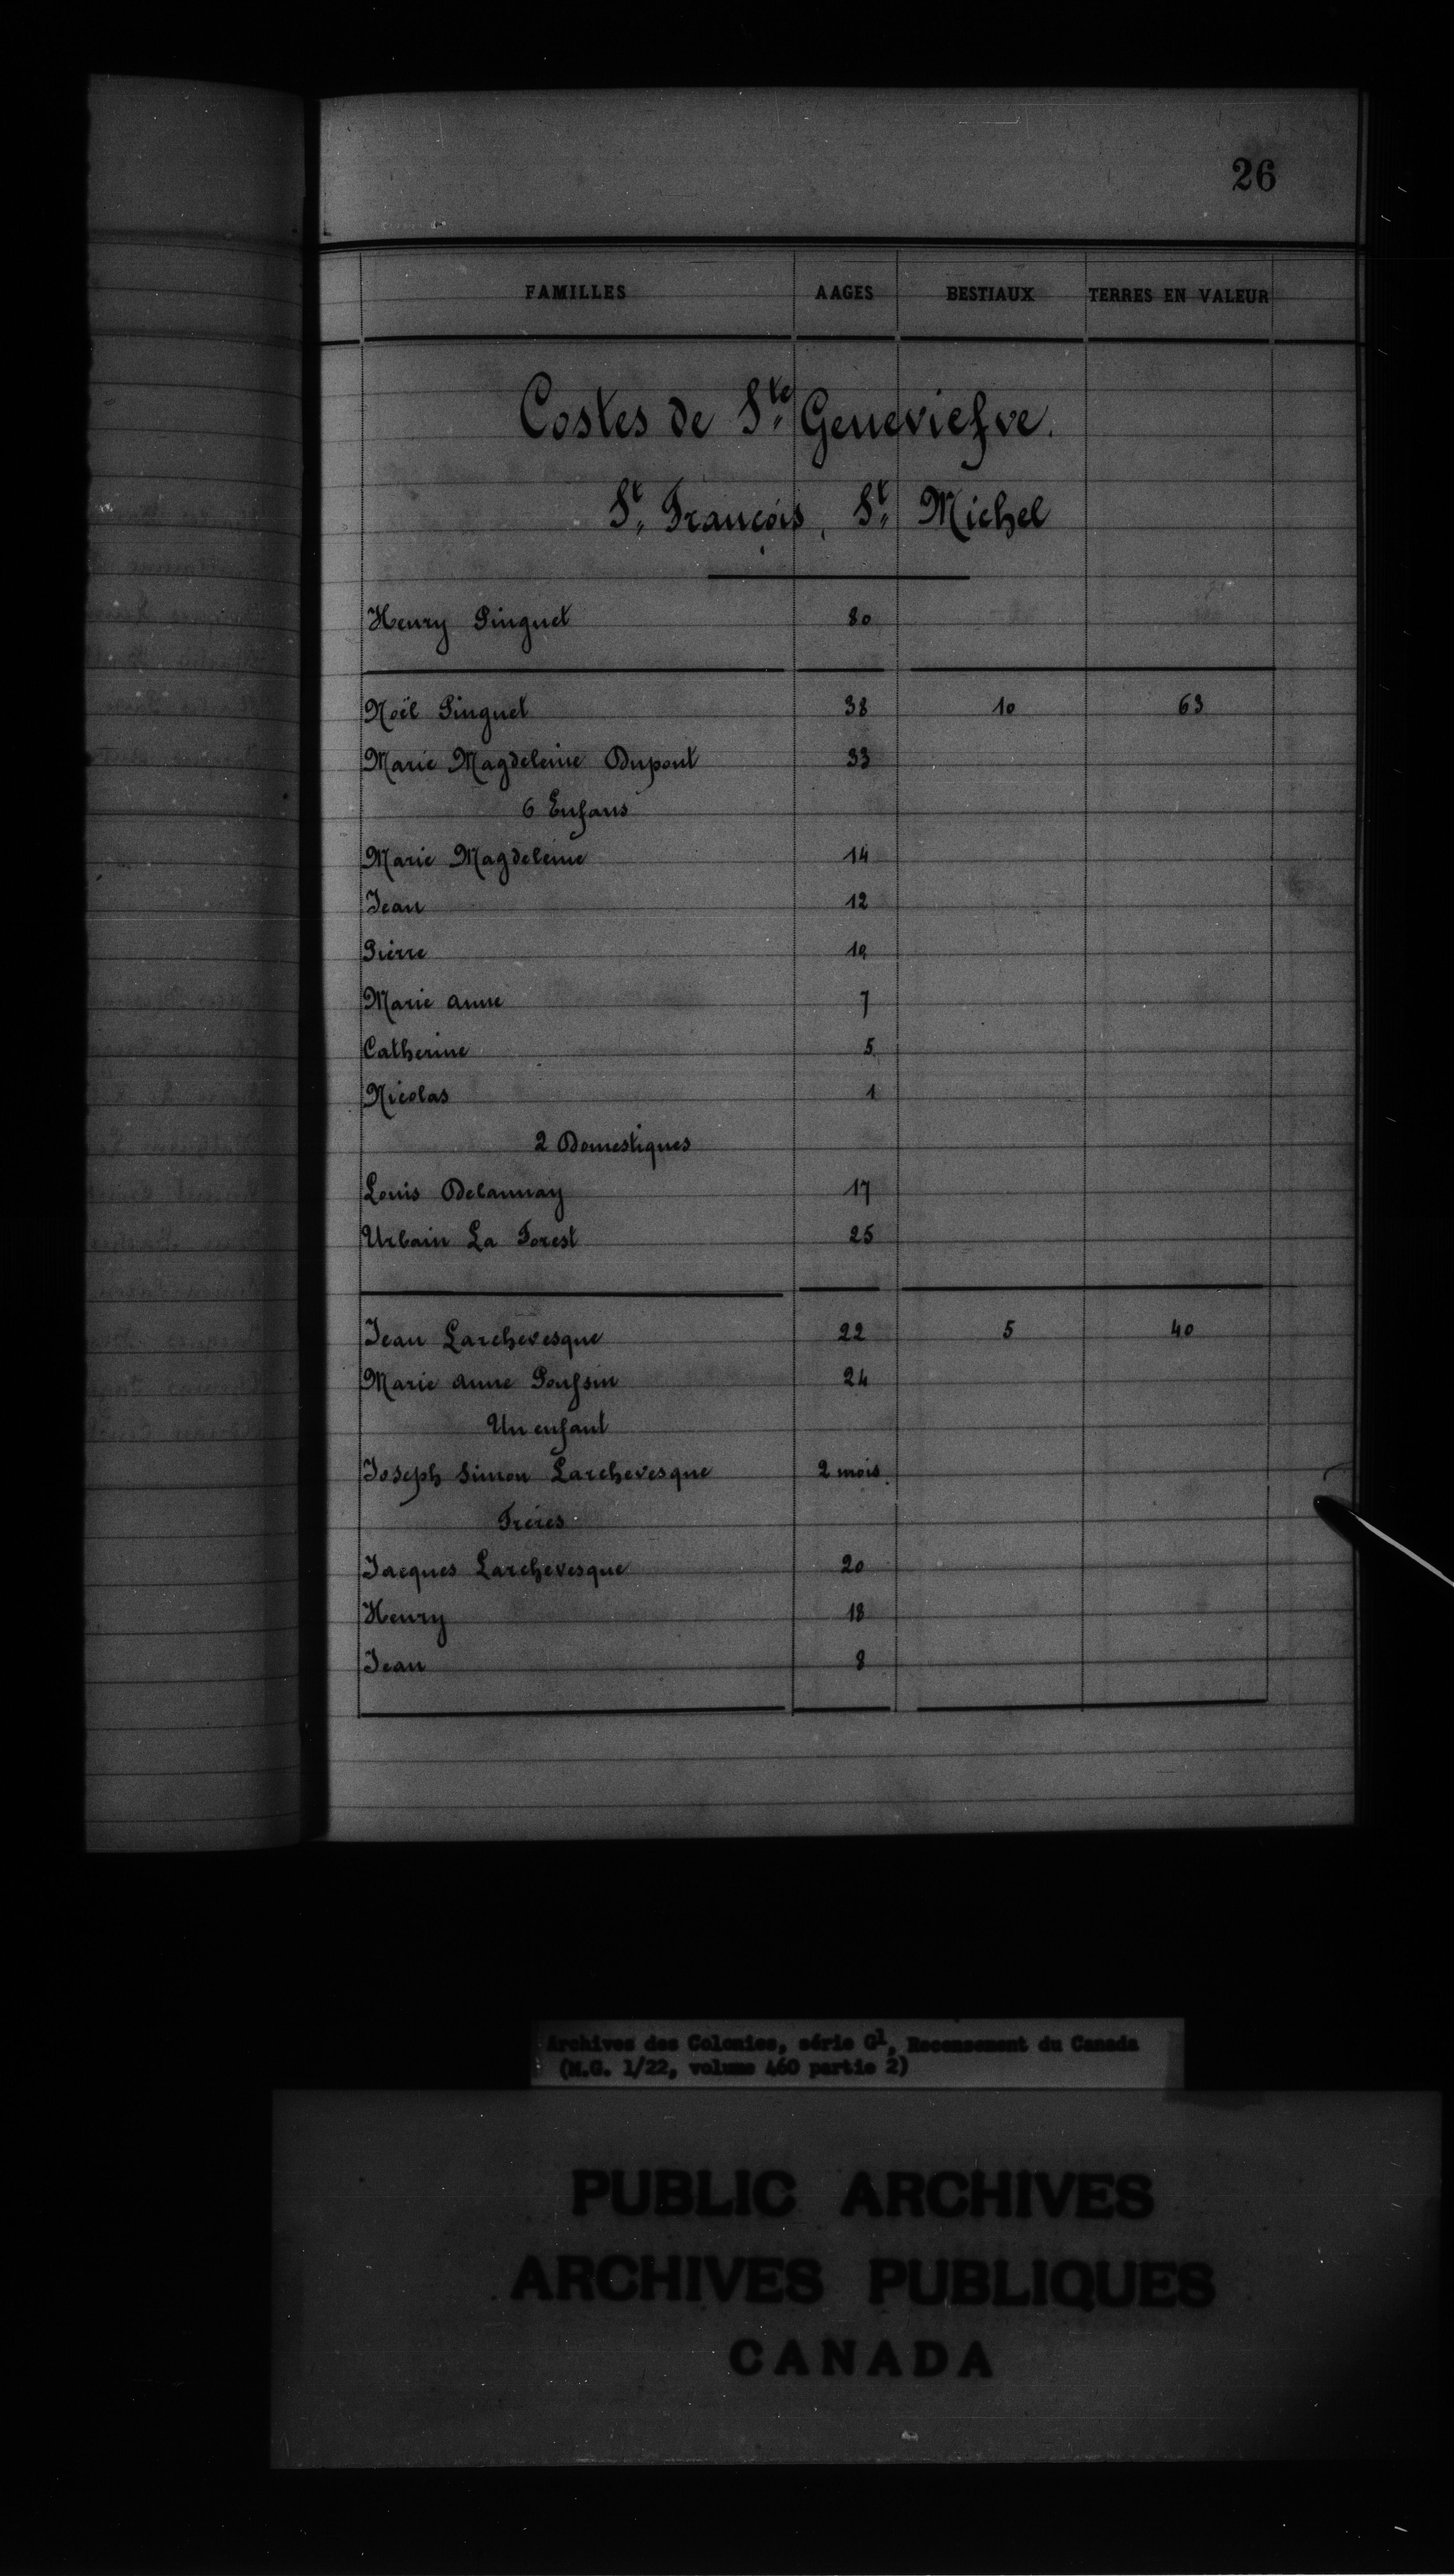 26
FAMILLES AAGES BESTIAUX TERRES EN VALEUR
Costes de Ste Geneviefve.
St François, St Michel
Henry Pinguet 80
Noël Pinguet 38 10 63
Marie Magdeleine Dupont 33
6 Enfans
Marie Magdeleine 14
Jean 12
Pierre 10
Marie anne 7
Catherine 5
Nicolas 1
2 Domestiques
Louis Delaunay 17
Urbain La Forest 25
Jean Larchevesque 22 5 40
Marie anne Poufsin 24
Un enfant
Joseph Simon Larchevesque 2 mois
Frères
Jacques Larchevesque 20
Henry 18
Jean 8
Archives des Colonies, série G1, Recensement du Canada
(M.G. 1/22, volume 460 partie 2)
PUBLIC ARCHIVES
ARCHIVES PUBLIQUES
CANADA